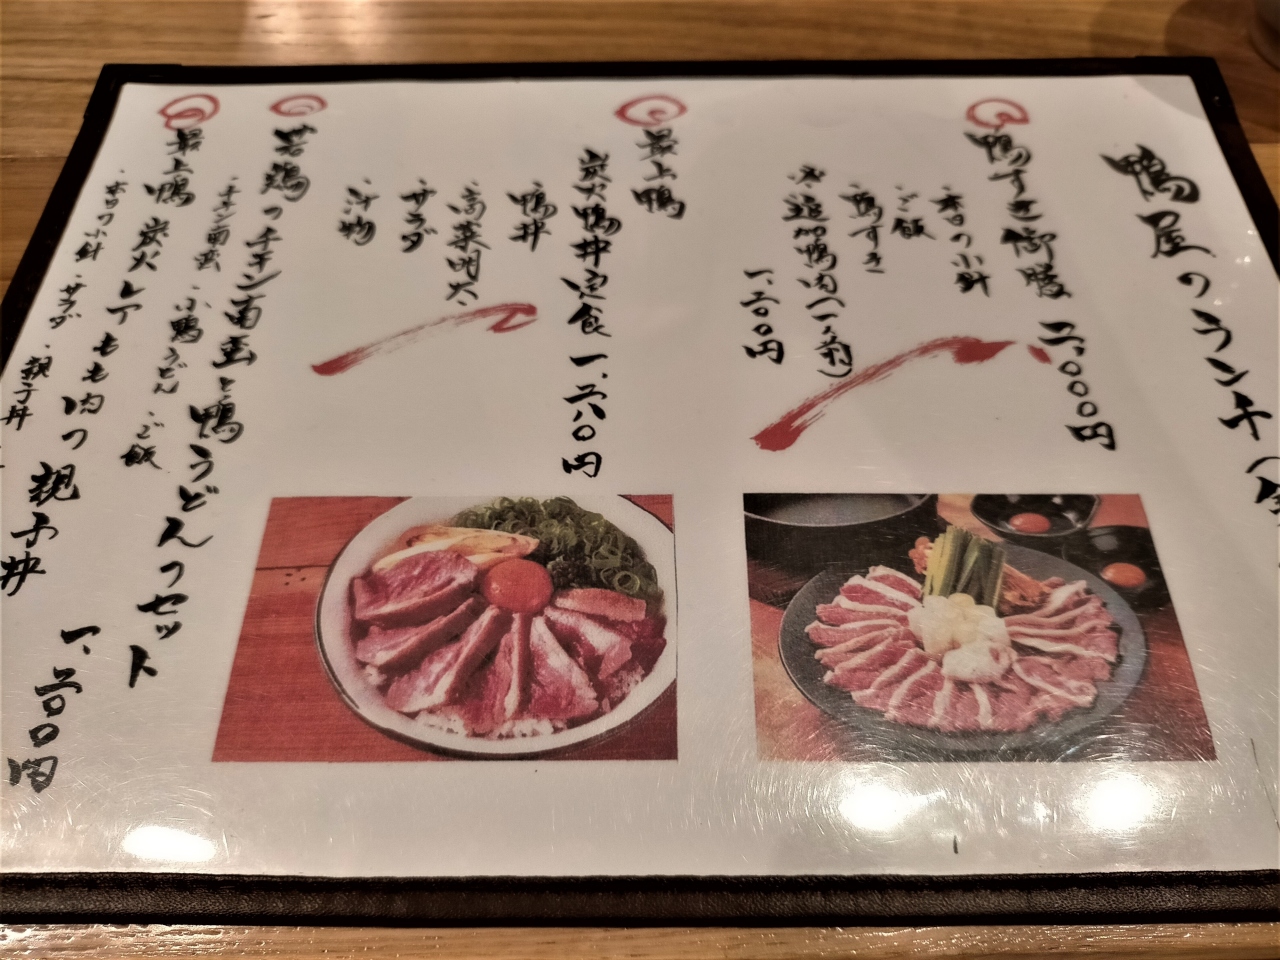 鴨屋のランチ(
鴨すき御膳 二、〇〇〇円
・本日の小鉢
・ご飯
・鴨すき
・追加鴨肉(一人前)
一、二〇〇円
最上鴨
炭火鴨丼定食 一、二八〇円
・鴨丼
・高菜明太
・サラダ
・汁物
若鶏のチキン南蛮と鴨うどんのセット
・チキン南蛮 ・小鴨うどん ・ご飯
最上鴨 炭火レアもも肉の親子丼
・本日の小鉢 ・サラダ ・親子丼